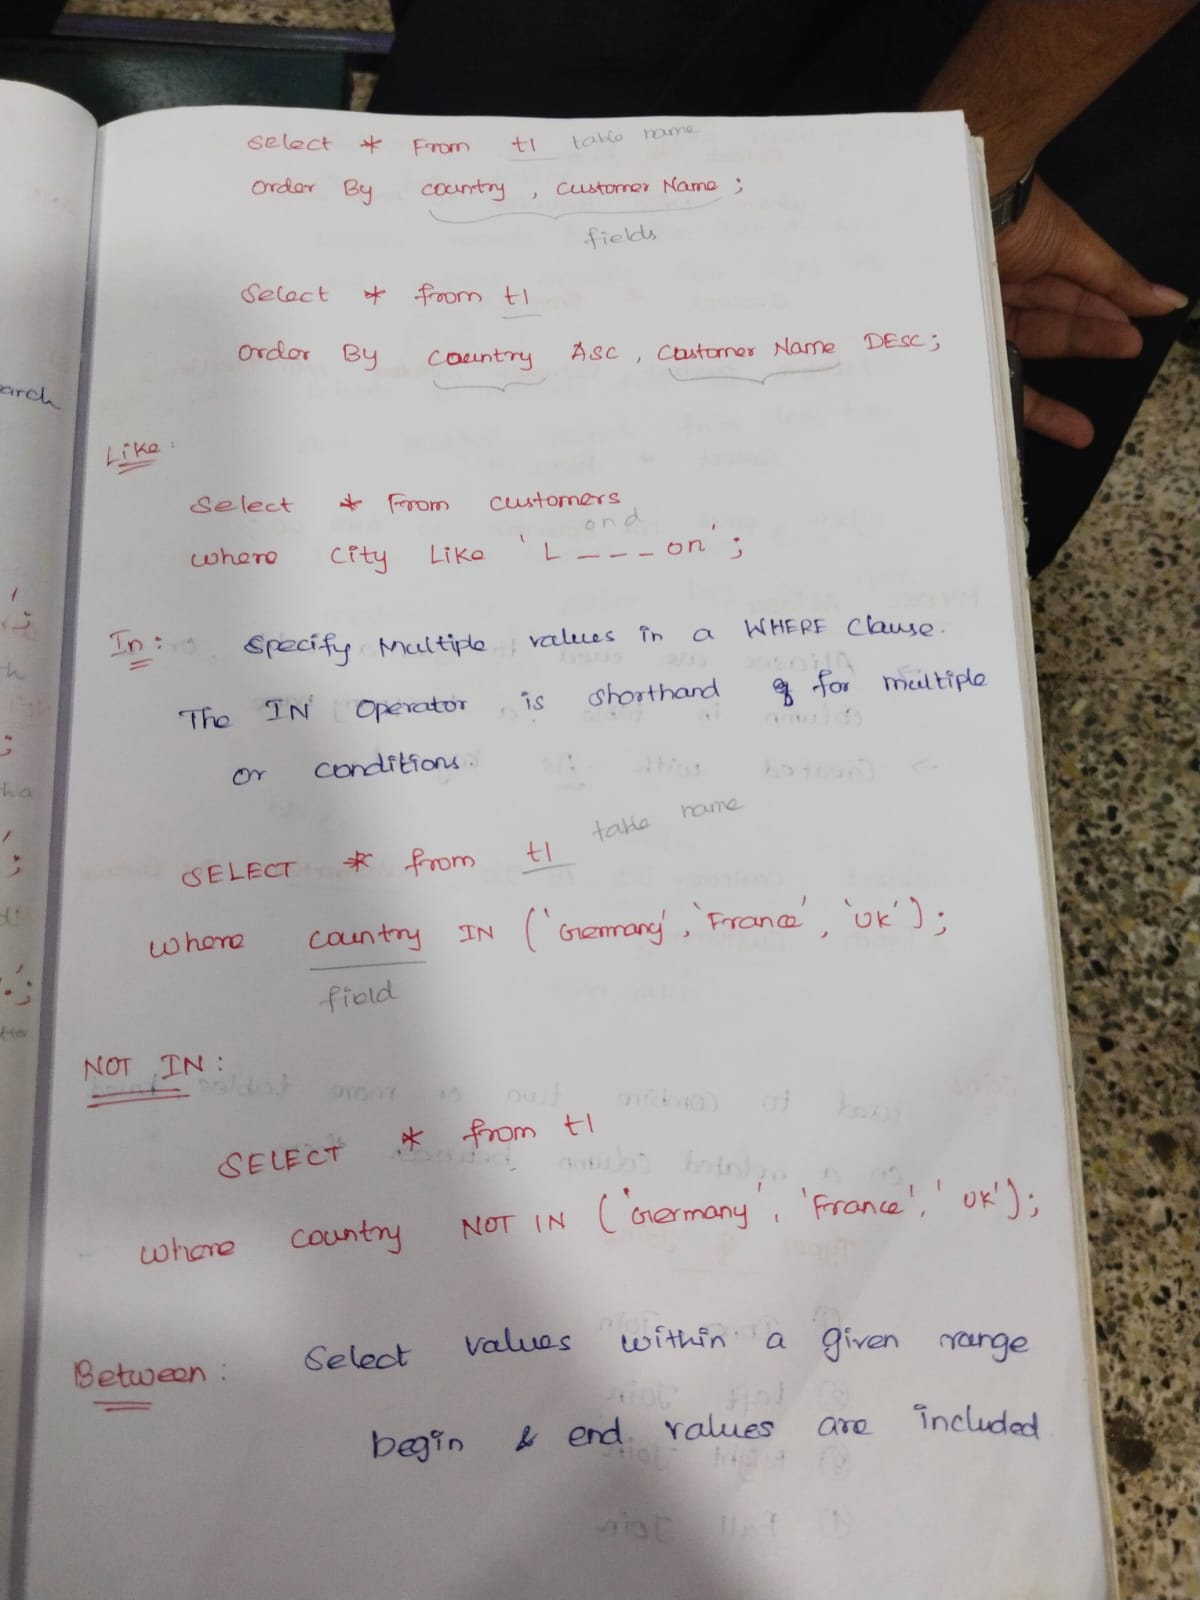 select * From t1 table name
order By country , Customer Name ;
fields
Select * from t1
order By Country ASC , Customer Name DESC ;
Like :
Select * From customers
ond
where City Like 'L _ _ _ on' ;
In : Specify Multiple values in a WHERE Clause.
The IN Operator is shorthand for multiple
or conditions.
table name
SELECT * from t1
where country IN ('Germany', 'France', 'UK');
field
NOT IN :
SELECT * from t1
where country NOT IN ('Germany', 'France', 'UK');
Between : Select values within a given range
begin & end values are included
arch